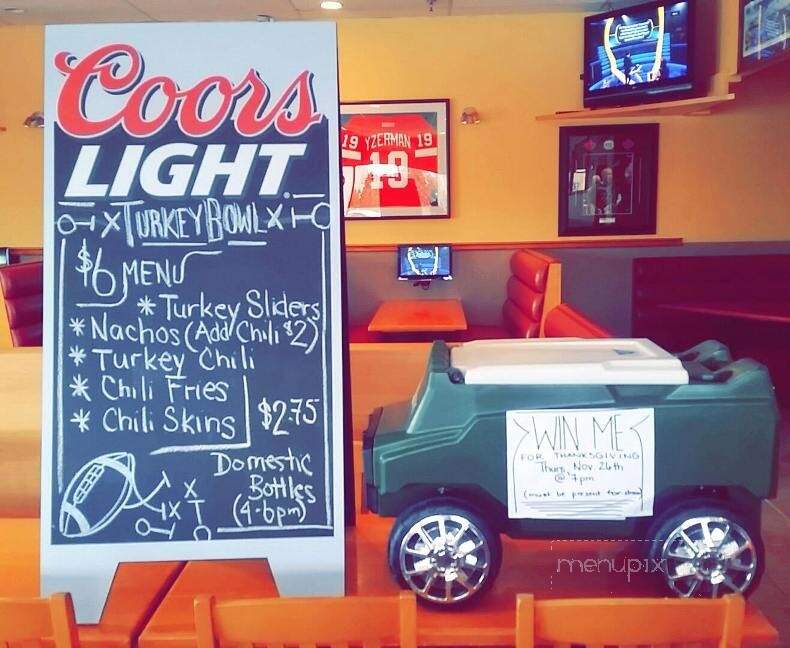 Coors
LIGHT
TURKEY BOWL
$6 MENU
* Turkey Sliders
* Nachos (Add Chili $2)
* Turkey Chili
* Chili Fries
* Chili Skins
$2.75
Domestic
Bottles
(4-6pm)
19 YZERMAN 19
19
WIN ME
FOR THANKSGIVING
Thurs, Nov. 26th
@ 7pm
(must be present for draw)
menupix